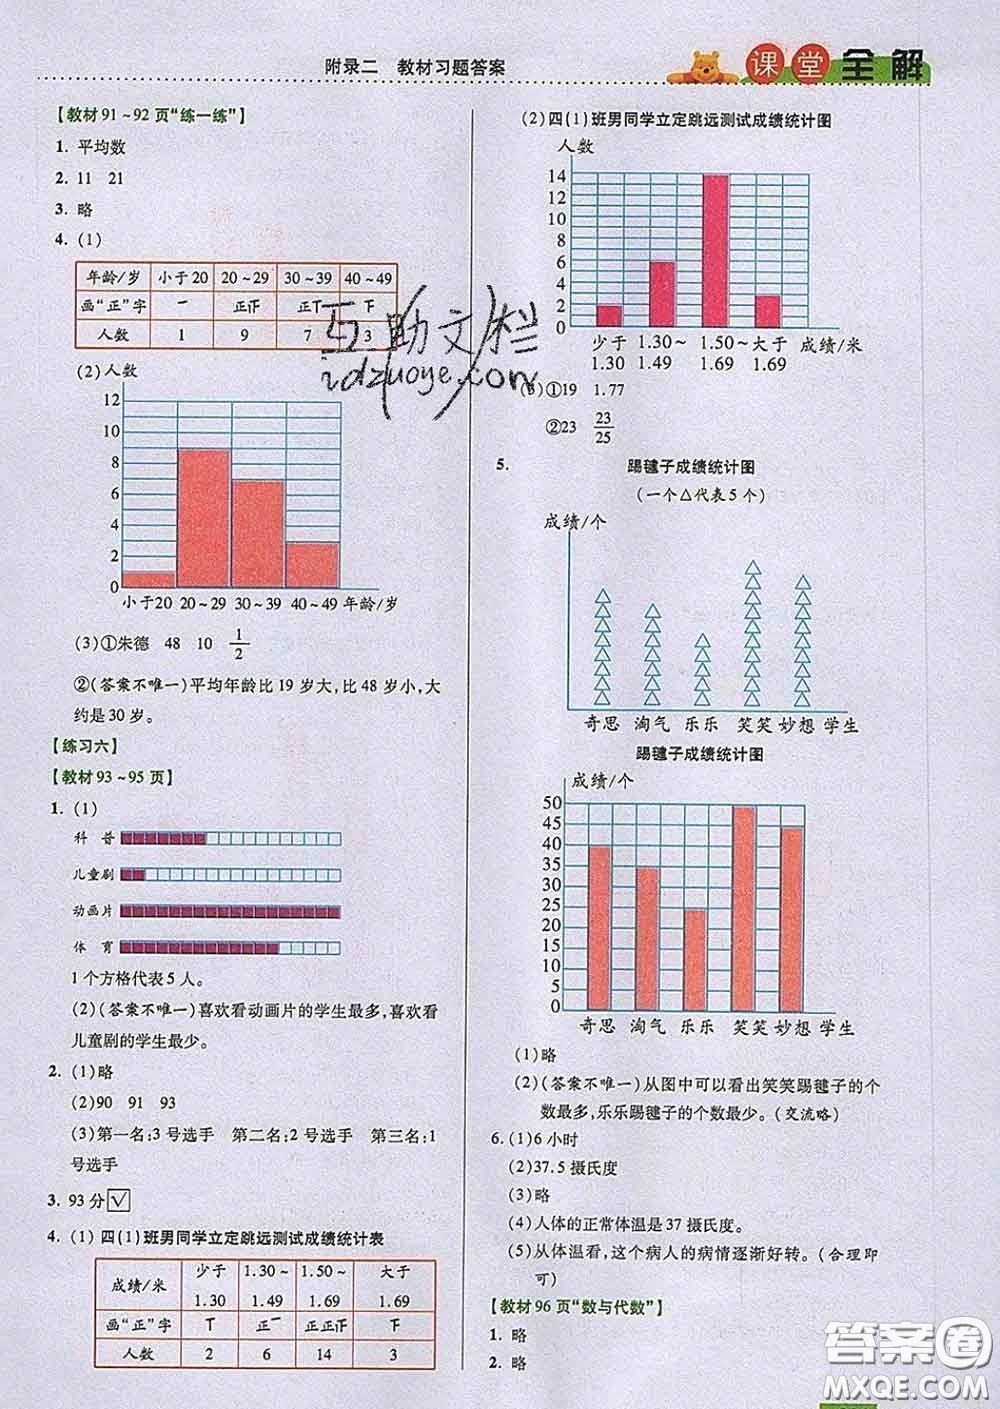 附录二 教材习题答案
课堂全解
【教材91~92页“练一练”】
1. 平均数
2. 11 21
3. 略
4. (1)
年龄/岁 小于20 20~29 30~39 40~49
画“正”字
人数 1 9 7 3
(2) 人数
12
10
8
6
4
2
0
小于20 20~29 30~39 40~49 年龄/岁
(3)①朱德 48 10 1/2
②(答案不唯一)平均年龄比19岁大,比48岁小,大
约是30岁。
【练习六】
【教材93~95页】
1. (1)
科 普
儿童剧
动画片
体 育
1个方格代表5人。
(2)(答案不唯一)喜欢看动画片的学生最多,喜欢看
儿童剧的学生最少。
2. (1)略
(2)90 91 93
(3)第一名:3号选手 第二名:2号选手 第三名:1
号选手
3. 93分 √
4. (1) 四(1)班男同学立定跳远测试成绩统计表
成绩/米 少于1.30 1.30~1.49 1.50~1.69 大于1.69
画“正”字
人数 2 6 14 3
(2)四(1)班男同学立定跳远测试成绩统计图
人数
14
12
10
8
6
4
2
0
少于 1.30~ 1.50~ 大于 成绩/米
1.30 1.49 1.69 1.69
(3)①19 1.77
②23 23/25
5. 踢毽子成绩统计图
(一个△代表5个)
成绩/个
奇思 淘气 乐乐 笑笑 妙想 学生
踢毽子成绩统计图
成绩/个
50
45
40
35
30
25
20
15
10
5
0
奇思 淘气 乐乐 笑笑 妙想 学生
(1)略
(2)(答案不唯一)从图中可以看出笑笑踢毽子的个
数最多,乐乐踢毽子的个数最少。(交流略)
6. (1)6小时
(2)37.5摄氏度
(3)略
(4)人体的正常体温是37摄氏度。
(5)从体温看,这个病人的病情逐渐好转。(合理即
可)
【教材96页“数与代数”】
1. 略
2. 略
互助文栏
idzuoye.com
答案圈
MXQE.COM